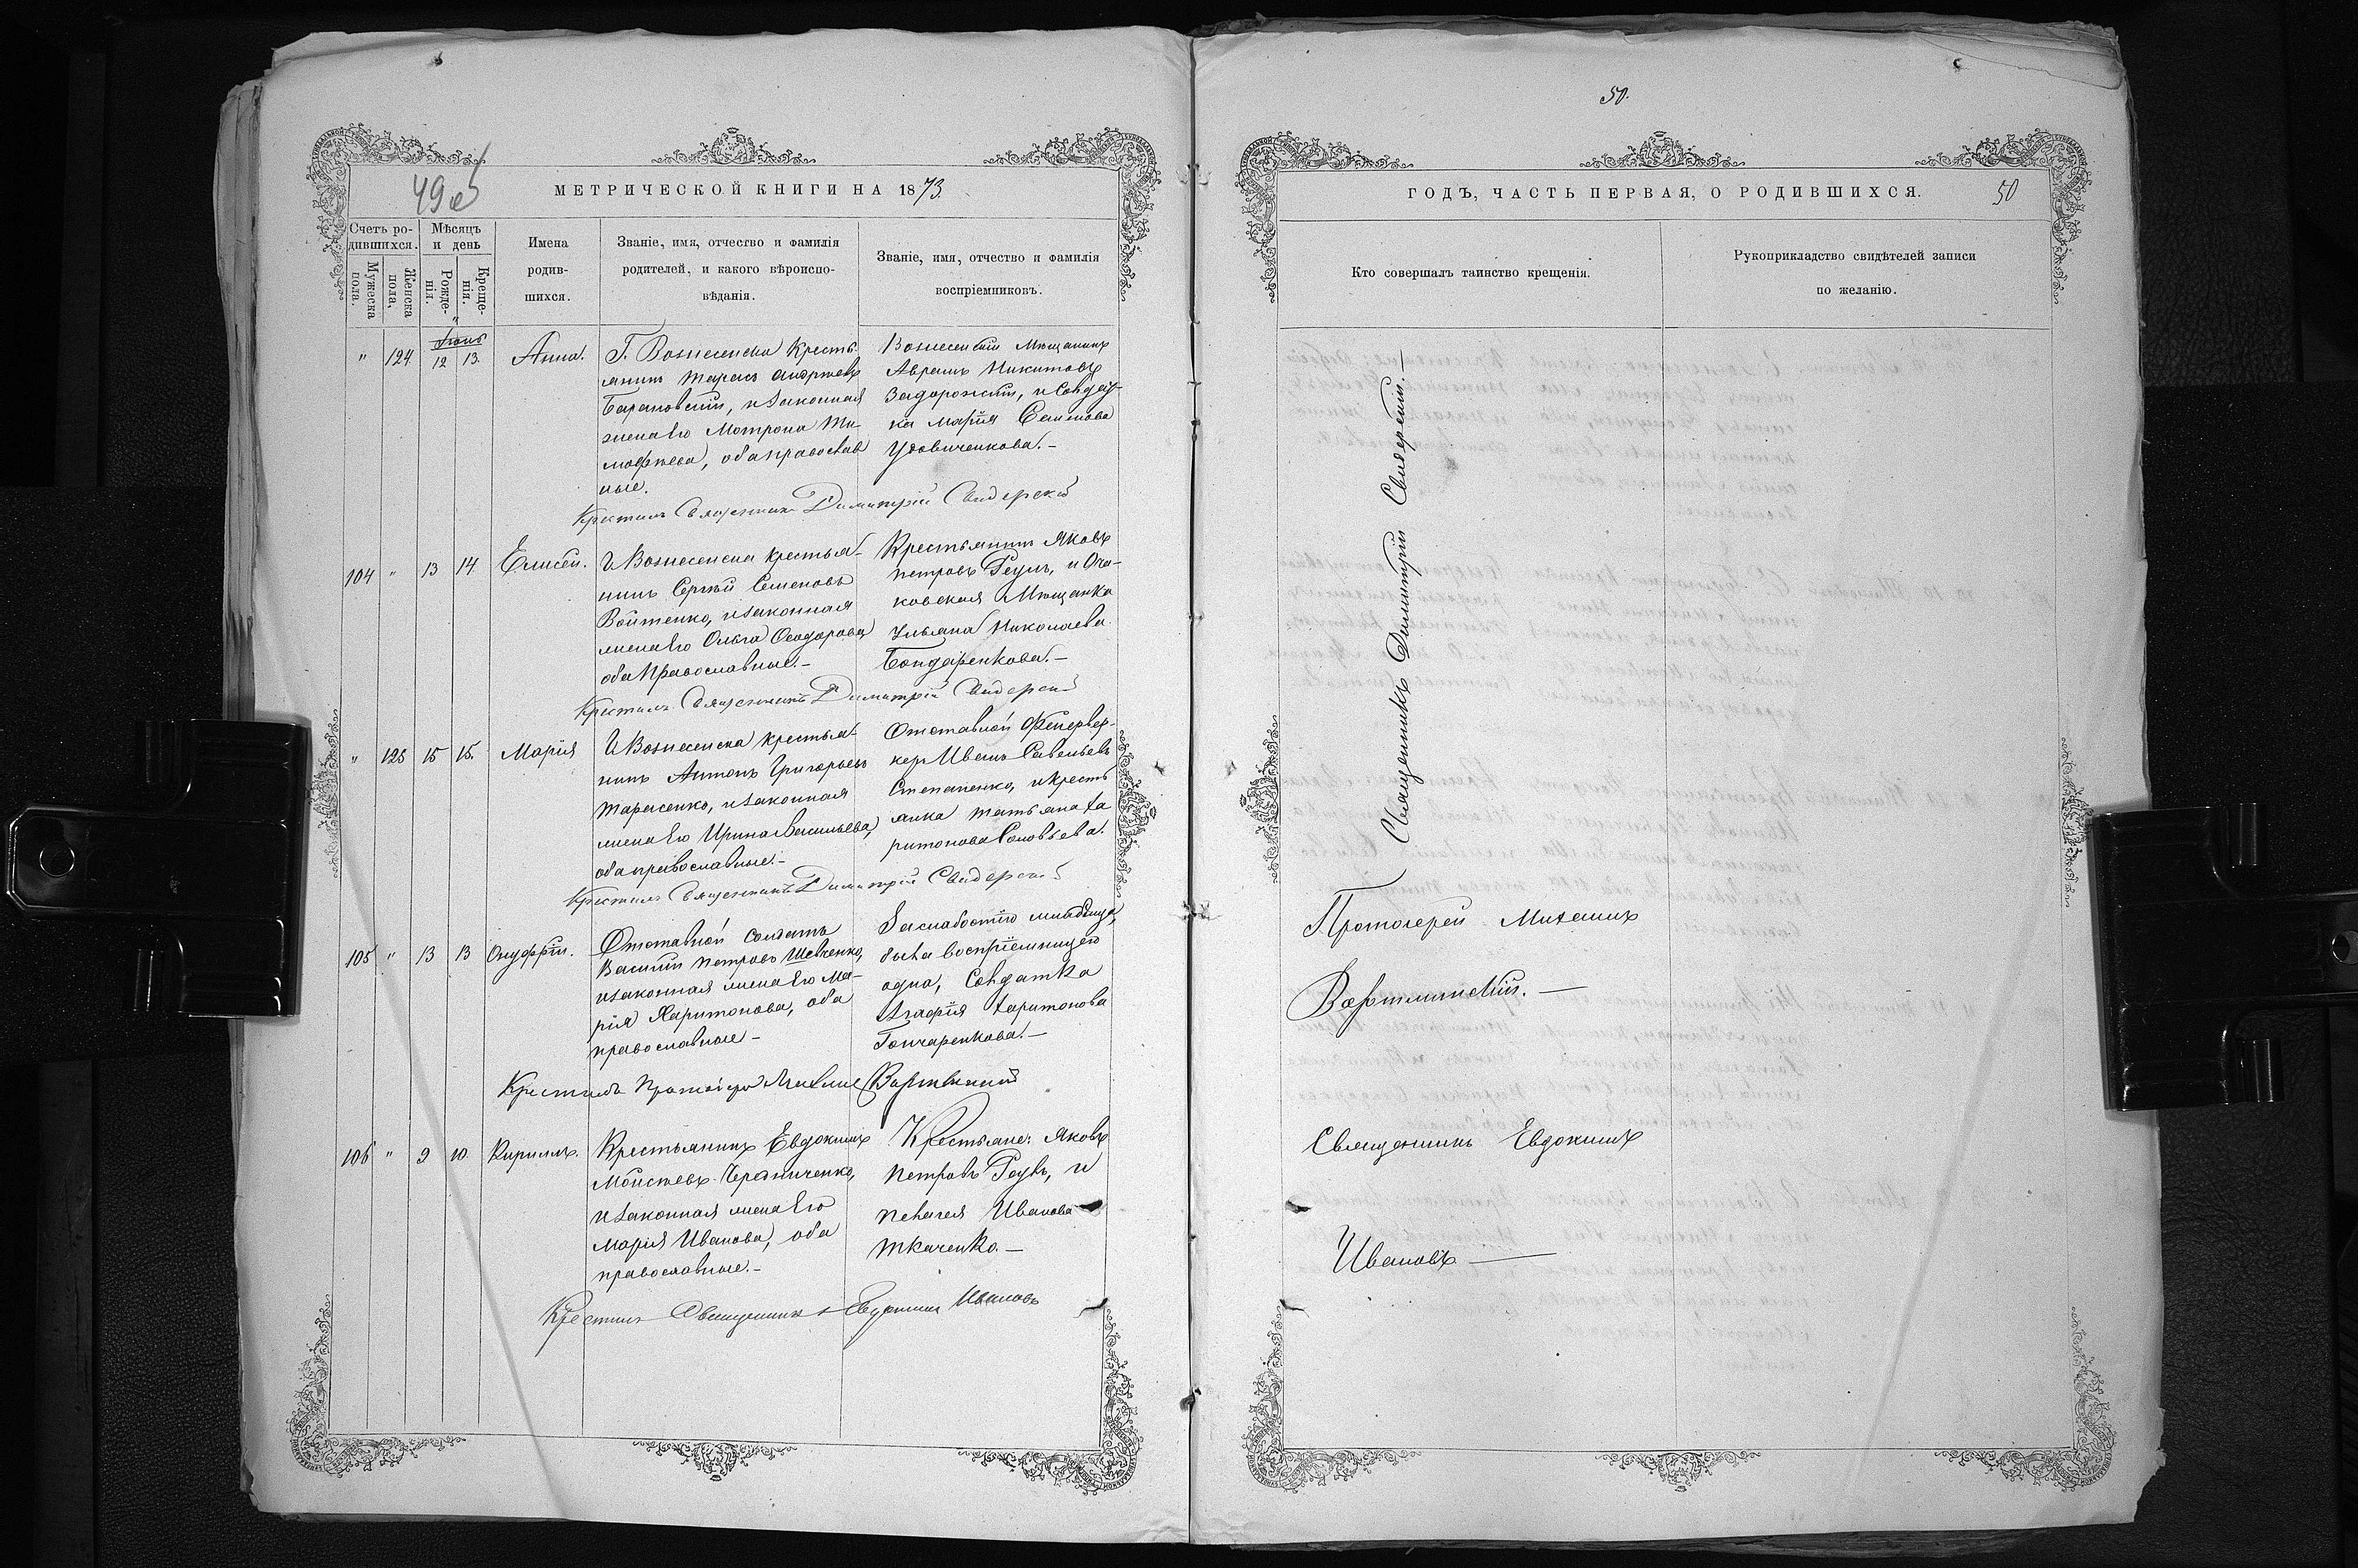 49 об
МЕТРИЧЕСКОЙ КНИГИ НА 1873.
Счетъ ро-
дившихся.
Мужеска
пола.
Женска
пола.
Мѣсяцъ
и день
Рожде-
нія.
Креще-
нія.
Имена
родив-
шихся.
Званіе, имя, отчество и фамилія
родителей, и какого вѣроиспо-
вѣданія.
Званіе, имя, отчество и фамилія
воспріемниковъ.
Іюнь
" 124 12 13. Анна.
Г. Вознесенска Кресть-
янинъ Тарасъ Андреевъ
Барановскій, и законная
жена его Матрона Ти-
мофѣева, оба православ
ные.
Вознесенскій Мѣщанинъ
Авраамъ Никитовъ
Задорожній, и Солдат-
ка Марія Семенова
Удовиченкова.-
Крестилъ Священникъ Димитрій Свидерскій
104 " 13 14 Елисей.
Г. Вознесенска крестья-
нинъ Сергѣй Семеновъ
Войтенко, и законная
жена его Ольга Ѳеодорова,
оба Православные.-
Крестьянинъ Яковъ
Петровъ Реулъ, и Оча-
ковская Мѣщанка
Ульяна Николаева
Бондаренкова.-
Крестилъ Священникъ Димитрій Свидерскій
" 125 15 15. Марія
Г. Вознесенска крестья-
нинъ Антонъ Григорьевъ
Тарасенко, и законная
жена его Ирина Васильева,
оба православные.-
Отставной Фейервер-
керъ Иванъ Савельевъ
Степаненко, и кресть
янка Татьяна Ха
ритонова Соловьева.
Крестилъ Священникъ Димитрій Свидерскій
105 " 13 13 Онуфрій.
Отставной солдатъ
Василій Петровъ Шевченко,
и законная жена его Ма-
рія Харитонова, оба
православные-
За слабостію младенца,
была воспріемницею
одна, Солдатка
Агафія Харитонова
Гончаренкова.-
Крестилъ Протоіерей Михаилъ Вартминскій
106 " 9 10 Кириллъ.
Крестьянинъ Евдокимъ
Моисеевъ Чередниченко,
и законная жена его
Марія Иванова, оба
православные.-
Крестьяне: Яковъ
Петровъ Реулъ, и
Пелагея Иванова
Ткаченко.-
Крестилъ Священникъ Евдокимъ Ивановъ
50.
ГОДЪ, ЧАСТЬ ПЕРВАЯ, О РОДИВШИХСЯ.
50
Кто совершалъ таинство крещенія.
Рукоприкладство свидѣтелей записи
по желанію.
Священникъ Димитрій Свидерскій.-
Протоіерей Михаилъ
Вартминскій.-
Священникъ Евдокимъ
Ивановъ-